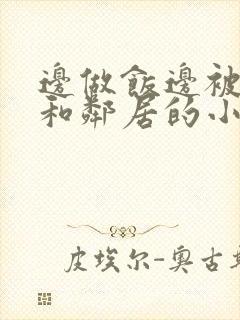 邊做飯邊被
和鄰居的小
皮埃尔-奥古